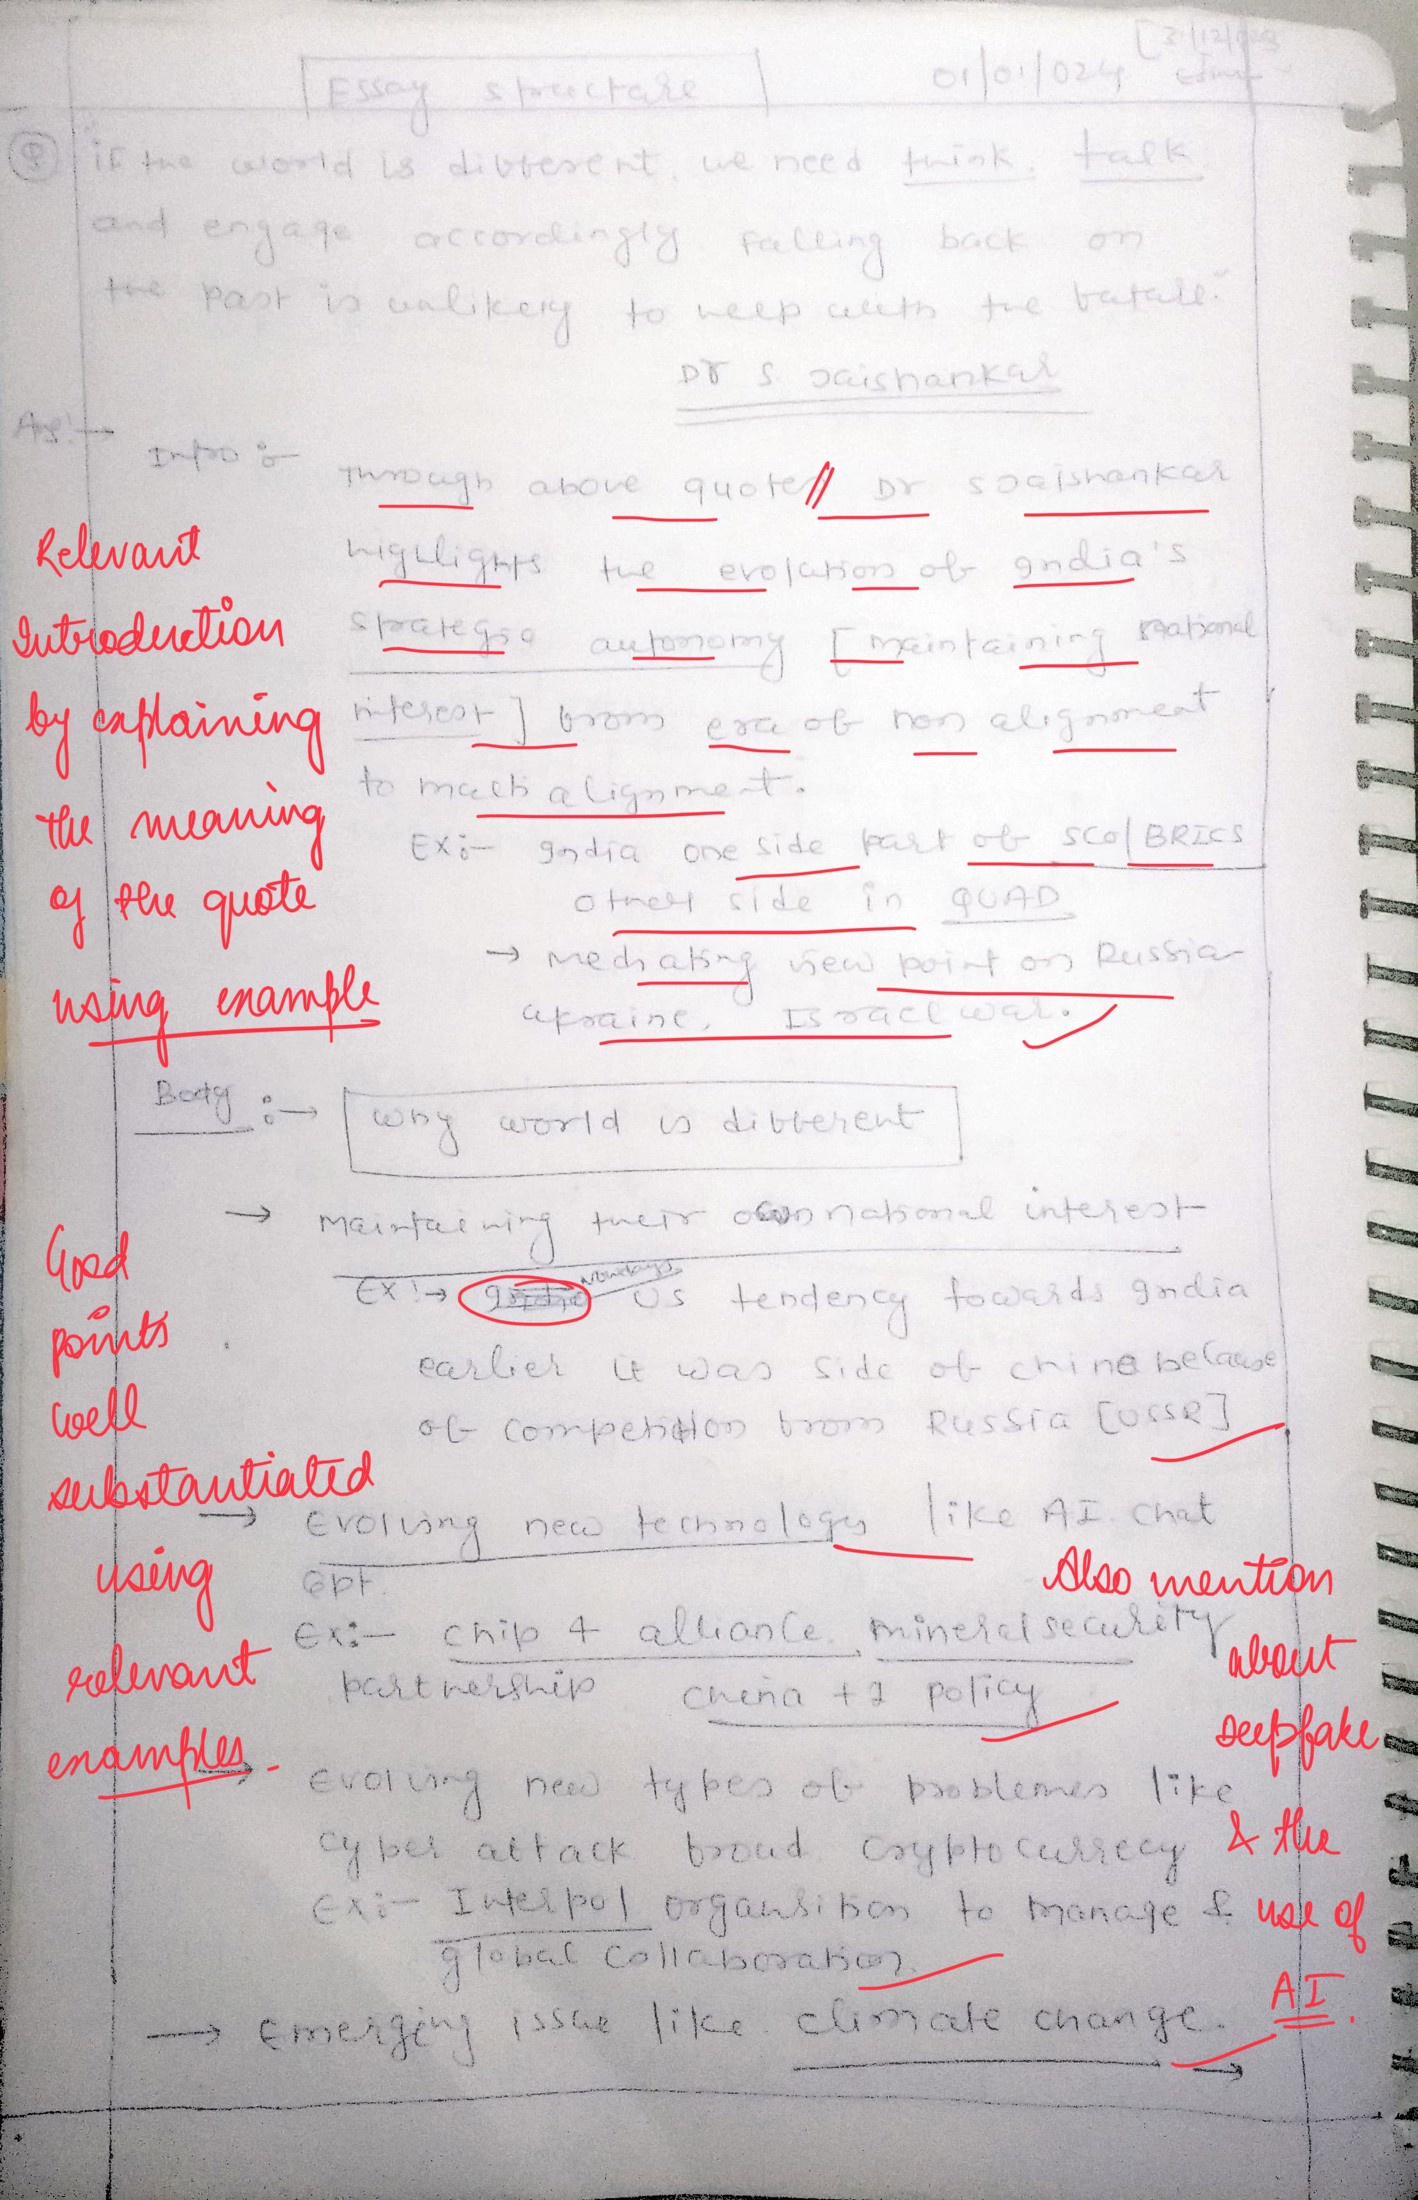 Essay structure
01/01/024
[31/12/023
(Q) "if the world is different, we need think, talk
and engage accordingly falling back on
the past is unlikely to help with the future."
Dr S. Jaishankar
Ans:→
Intro :-
Through above quote // Dr S Jaishankar
highlights the evolution of India's
strategic autonomy [maintaining national
interest] from era of non alignment
to multi alignment.
Ex:- India one side part of SCO/BRICS
other side in QUAD
→ Mediating view point on Russia-
Ukraine, Israel war.
Relevant
Introduction
by explaining
the meaning
of the quote
using example
Body :→ Why world is different
→ Maintaining their own national interest
Ex:→ Nowdays US tendency towards India
earlier it was side of china because
of competition from Russia [USSR]
→ Evolving new technology like AI. Chat
Gpt.
Ex:- chip 4 alliance, mineral security
partnership china + 1 policy
→ Evolving new types of problemes like
cyber attack froud cryptocurrecy
Ex:- Interpol organsition to manage &
global collaboration.
→ Emerging issue like climate change. →
Good
points
well
substantiated
using
relevant
examples.
Also mention
about
deepfake
& the
use of
AI.